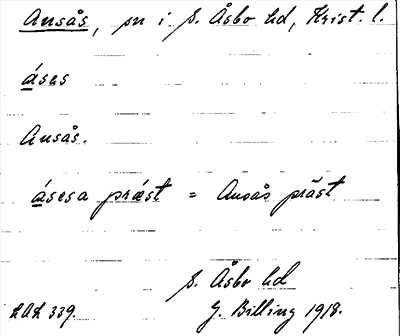 Ausås, sn i S. Åsbo hd, Krist. l.
åsas
Ausås.
åsesa präst = Ausås präst
S. Åsbo hd
LAL 339. G. Billing 1918.